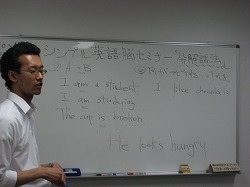 シンプル英語脳セミナー "分解話法"
① A = B
I am a student I like chocolate
I am studying
The cup is broken
He looks hungry